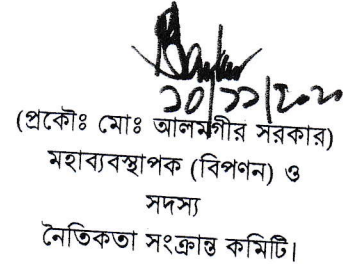 ১০/১১/২০২০
(প্রকৌঃ মোঃ আলমগীর সরকার)
মহাব্যবস্থাপক (বিপণন) ও
সদস্য
নৈতিকতা সংক্রান্ত কমিটি।